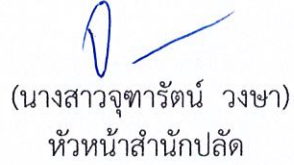 (นางสาวจุฑารัตน์ วงษา)
หัวหน้าสำนักปลัด